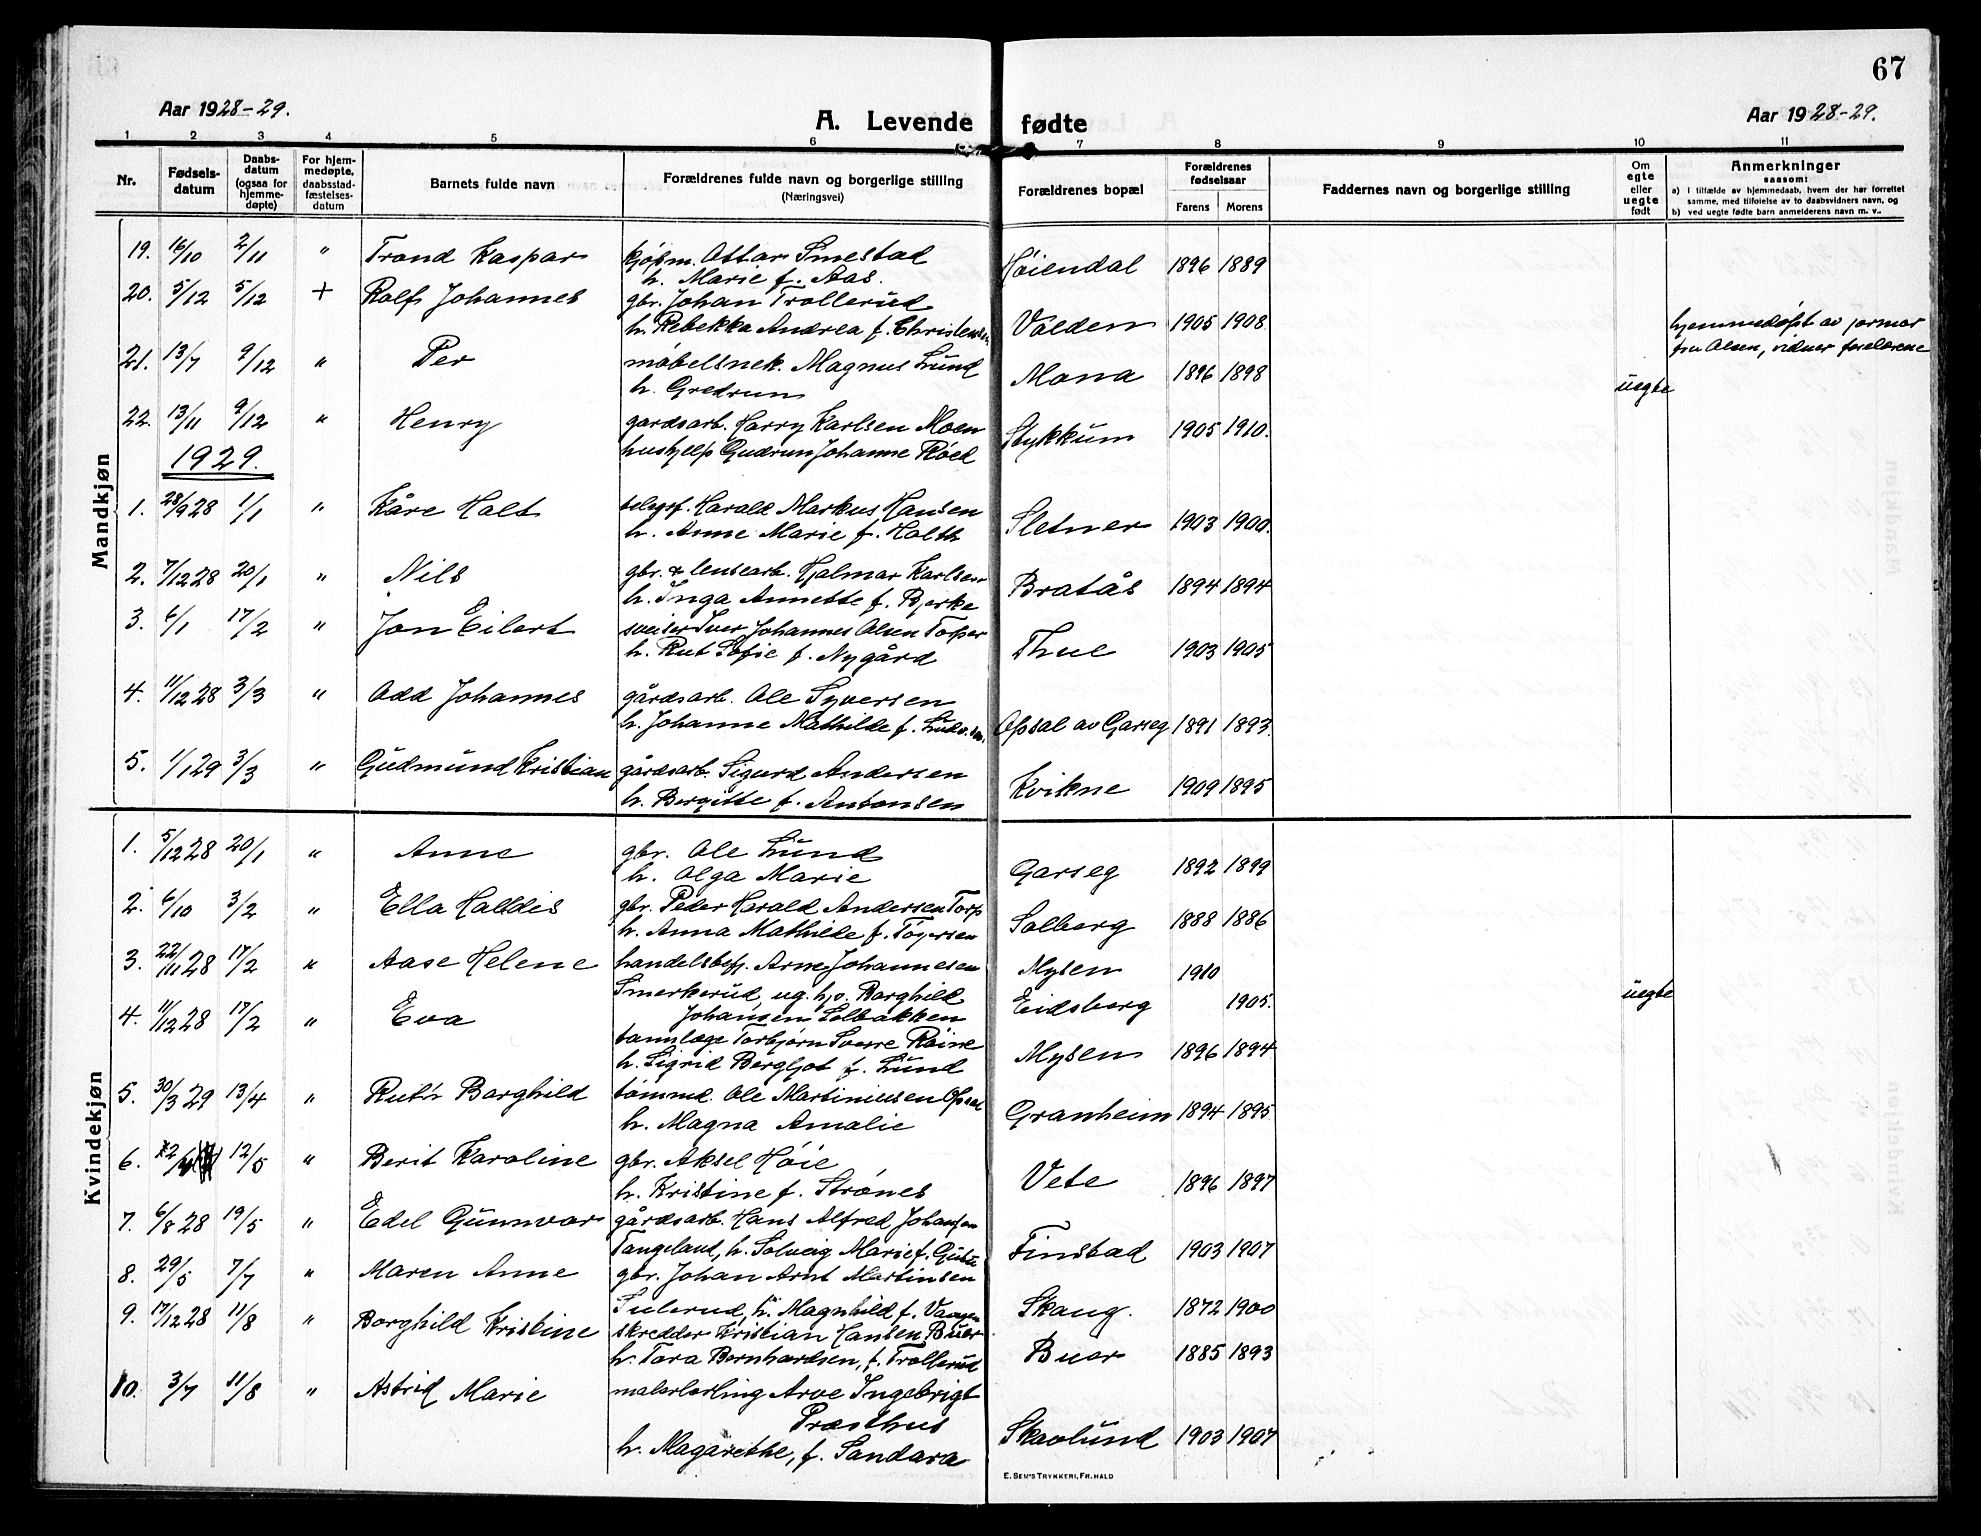 67
Aar 1928-29.
A. Levende fødte
Aar 1928-29.
1 2 3 4 5 6 7 8 9 10 11
Nr.
Fødsels-datum
Daabs-datum (ogsaa for hjemme-døpte)
For hjem-medøpte, daabsstad-fæstelses-datum
Barnets fulde navn
Forældrenes fulde navn og borgerlige stilling
(Næringsvei)
Forældrenes bopæl
Forældrenes fødselsaar
Farens Morens
Faddernes navn og borgerlige stilling
Om egte eller uegte født
Anmerkninger
saasom:
a) I tilfælde av hjemmedaab, hvem der har forrettet
samme, med tilføielse av to daabsvidners navn, og
b) ved uegte fødte barn anmelderens navn m. v.
Mandkjøn
19. 16/10 2/11 " Trond Kaspar kjøpm. Ottar Smestad
h. Marie f. Aas. Høiendal 1896 1889
20. 5/12 5/12 + Rolf Johannes gbr. Johan Trollerud
h. Rebekka Andrea f. Christensen Volden 1905 1908 hjemmedøpt av jormor
fru Olsen, vidner forældrene
21. 13/7 9/12 " Per møbelsnek. Magnus Lund
h. Gredrun Mona 1896 1898
uegte
22. 13/11 9/12 " Henry gardsarb. Harry Karlsen Moen
hushjelp Gudrun Johanne Røed Stykkum 1905 1910.
1929.
1. 28/9 28 1/1 " Kåre Holt telegrf. Harald Markus Hansen
h. Anne Marie f. Holth Sletner 1903 1900.
2. 7/12 28 20/1 " Nils gbr. & lensearb. Hjalmar Karlsen
h. Inga Annette f. Bjerke Bratås 1894 1894
3. 6/1 17/2 " Jon Eilert sveiser Iver Johannes Olsen Toper
h. Rut Sofie f. Nygård Thue 1903 1905
4. 11/12 28 3/3 " Odd Johannes gårdsarb. Ole Syversen
h. Johanne Mathilde f. Ludv.sen. Opsal av Garseg 1891 1893
5. 1/1 29 3/3 " Gudmund Kristian gårdsarb. Sigurd Andersen
h. Bergitte f. Antonsen Kvikne 1909 1895
Kvindekjøn
1. 5/12 28 20/1 " Anne gbr. Ole Lund
h. Olga Marie Garseg 1892 1899
2. 6/10 3/2 " Ella Halldis gbr. Peder Harald Andersen Torp
h. Anna Mathilde f. Tøgersen Solberg 1888 1886
3. 22/11 28 17/2 " Aase Helene handelsbetj. Arne Johannesen
Smerkerud, ug. hj. Borghild
Johansen Solbakken Mysen 1910
Eidsberg 1905. uegte
4. 11/12 28 17/2 " Eva tannlæge Torbjørn Sverre Røine
h. Sigrid Bergljot f. Lund Mysen 1896 1894
5. 30/3 29 13/4 " Ruth Borghild tømmd. Ole Martiniusen Opsal
h. Magna Amalie Granheim 1894 1895
6. 12/5 " Berit Karoline gbr. Aksel Høie
h. Kristine f. Strønes Vete 1896 1897
7. 6/8 28 19/5 " Edel Gunnvor gårdsarb. Hans Alfred Johansen
Tangeland, h. Solveig Marie f. Finstad 1903 1907
8. 29/5 7/7 " Maren Anne gbr. Johan Arnt Martinsen
Sulerud, h. Magnhild f. Vangen Skaug. 1872 1900
9. 17/12 28 11/8 " Borghild Kristine skredder Kristian Hansen Buer
h. Tora Bernhardsen, f. Trollerud Buer 1885 1893
10. 3/7 11/8 " Astrid Marie malerlærling Arve Ingebrigt
Præsthus
h. Magarethe, f. Sandara Skavlund 1903 1907
E. SEM'S TRYKKERI, FR. HALD